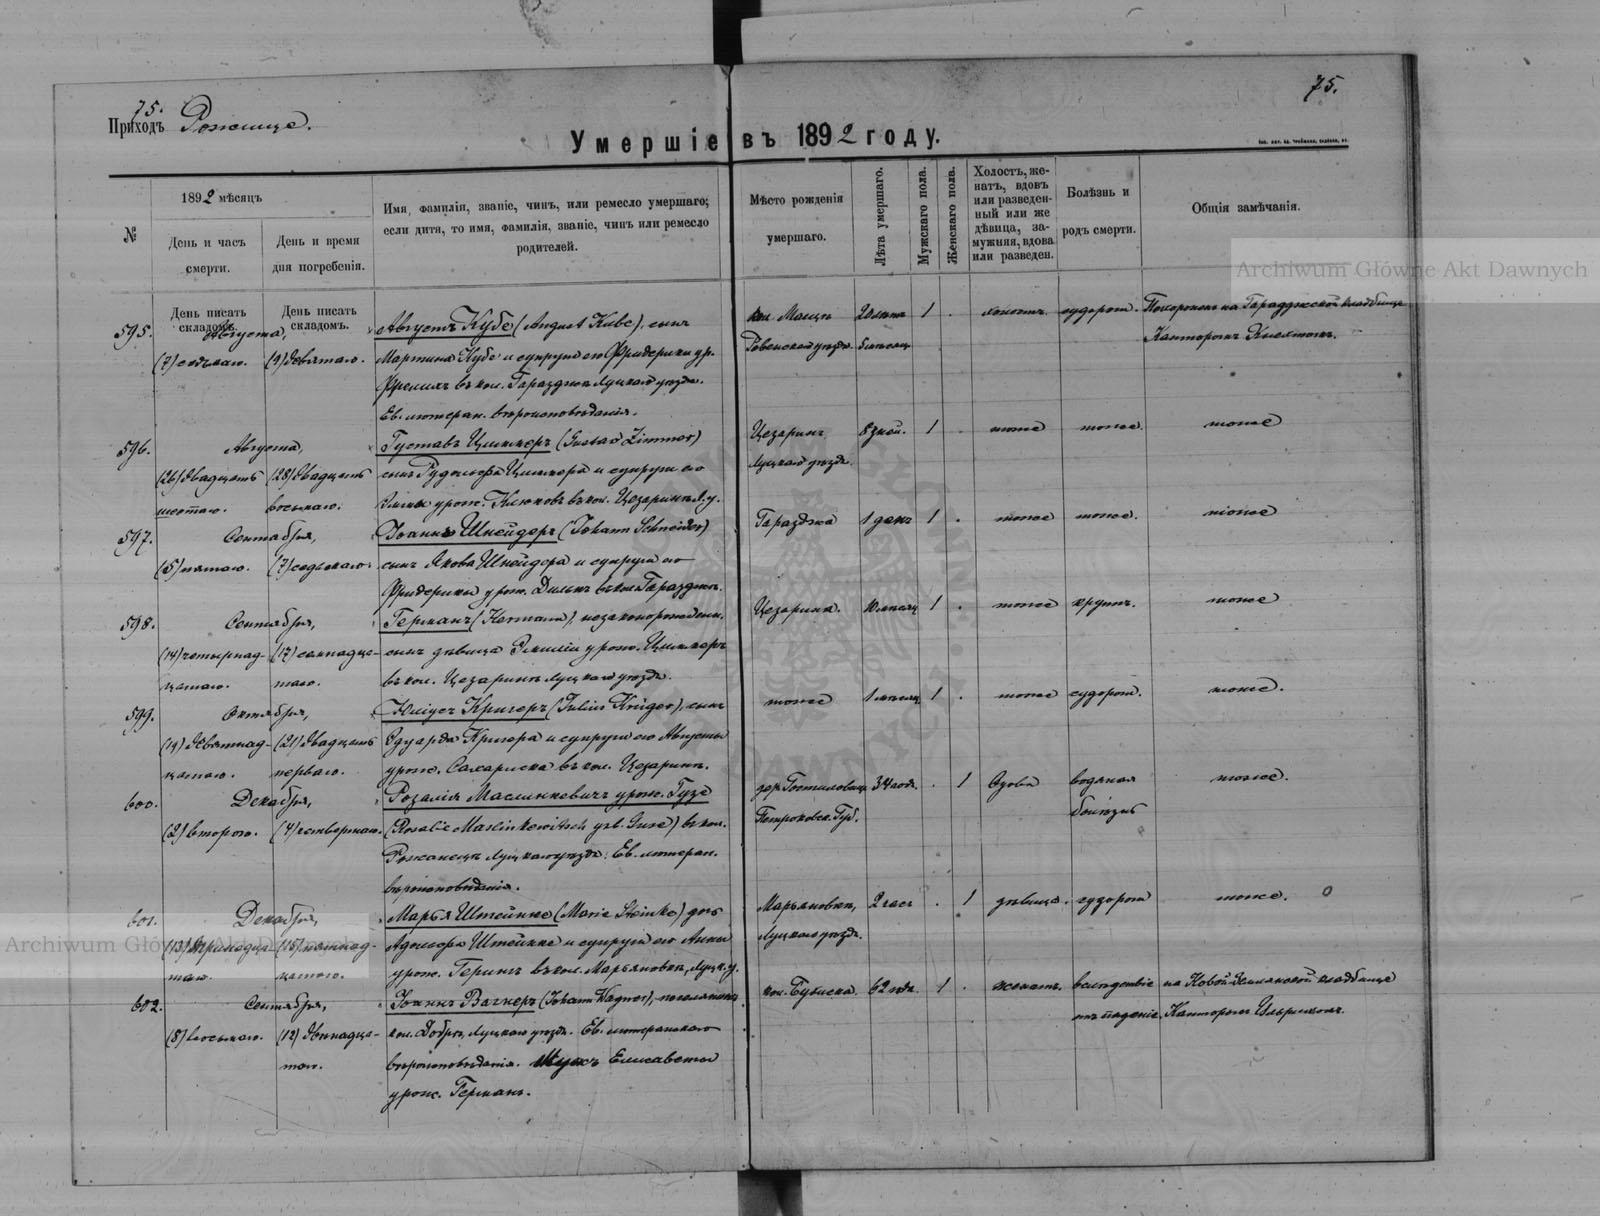 75.
75.
Приходъ Рожище.
Умершіе въ 1892 году.
№
1892 мѣсяцъ
День и часъ смерти.
День и время дня погребенія.
Имя, фамилія, званіе, чинъ, или ремесло умершаго;
если дитя, то имя, фамилія, званіе, чинъ или ремесло
родителей.
Мѣсто рожденія
умершаго.
Лѣта умершаго.
Мужскаго пола.
Женскаго пола.
Холостъ, же-
натъ, вдовъ
или разведен-
ный или же
дѣвица, за-
мужняя, вдова
или разведен.
Болѣзнь и
родъ смерти.
Общія замѣчанія.
Archiwum Główne Akt Dawnych
День писать складомъ.
День писать складомъ.
595.
Августа,
(7) седьмаго.
(9) девятаго.
Августъ Кубе (August Kube), сынъ
Мартина Кубе и супруги его Фридерики ур.
въ кол. Гаразджа Луцкаго уѣзда.
Ев. лютеран. вѣроисповѣданія.
Ровенскаго уѣзда
1
холостъ.
судорог.
Похороненъ на Гаразджской кладбище
Канторомъ
596.
Августа,
(26) двадцать
шестаго.
(28) двадцать
восьмаго.
Густавъ Циммеръ (Gustav Zimmer)
сынъ Рудольфа Циммера и супруги его
урож. въ кол. Цезаринъ Л. у.
Цезаринъ
Луцкаго уѣзда
1
тоже
тоже.
тоже
597.
Сентября,
(5) пятаго.
(7) седьмаго.
Іоаннъ Шнейдеръ (Johann Schneider)
сынъ Якова Шнейдера и супруги его
Фридерики урож. въ кол. Гаразджа.
Гаразджа
1 день
1
тоже
тоже.
тоже
598.
Сентября,
(14) четырнад-
цатаго.
(17) семнадца-
таго.
Германъ (Hermann), незаконорожден.
сынъ дѣвицы Эмиліи урож. Циммеръ
въ кол. Цезаринъ Луцкаго уѣзда.
Цезаринъ.
1
тоже
крупъ.
тоже
599.
Октября,
(19) девятнад-
цатаго.
(21) двадцать
перваго.
Юліусъ Кригеръ (Julius Krüger), сынъ
Эдуарда Кригера и супруги его Августы
урож. въ кол. Цезаринъ.
тоже
1 мѣсяц
1
тоже
судорог.
тоже.
600.
Декабря,
(2) втораго.
(4) четвертаго.
Розалія Маслинкевичъ урож. Гузе
(Rosalie Maslinkewitsch geb. Guse) въ кол.
Луцкаго уѣзда. Ев. лютеран.
вѣроисповѣданія.
Петроковс. Губ.
34 года.
1
Вдова
водяная
болѣзнь
тоже.
601.
Декабря,
(13) тринадца-
таго.
(15) пятнад-
цатаго.
Марья Штейнке (Marie Steinke) дочь
Адольфа Штейнке и супруги его Анны
урож. Герингъ въ кол. Марьяновка, Луцк. у.
Марьяновка,
Луцкаго уѣзда.
2 часа
1
дѣвица.
судорог
тоже.
Archiwum Główne Akt Dawnych
602.
Сентября,
(8) восьмаго.
(12) двѣнадца-
таго.
Іоаннъ Вагнеръ (Johann Wagner), поселянинъ
кол. Луцкаго уѣзда. Ев. лютеранскаго
вѣроисповѣданія. Мужъ Елисаветы
урож. Германъ.
кол.
62 года.
1
женатъ.
вслѣдствіе
паденіе
на кладбище
Канторомъ